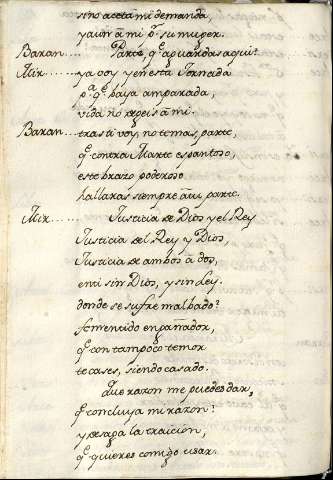 sino aceta mi demanda,
y aun à mi pr. su muger.
Baxan..... Parte, q̃ aguardas aqui?
Mir..... ya voy y en esta Jornada
pa. q̃ vaya amparada,
vida no
Baxan.... tras ti voy, no temas, parte,
q̃ contra Marte espantoso,
este brazo poderoso
hallaras siempre à tu parte.
Mir..... Justicia de Dios y el Rey
Justicia del Rey y Dios,
Justicia de ambos à dos,
en ti sin Dios, y sin Ley.
donde se sufre mal bado?
Fementido engañador,
q̃ con tampoco temor
te cases, siendo casado.
Que razon me puedes dar,
q̃ concluya mi razon?
y la traicion,
q̃ quieres comigo usar.